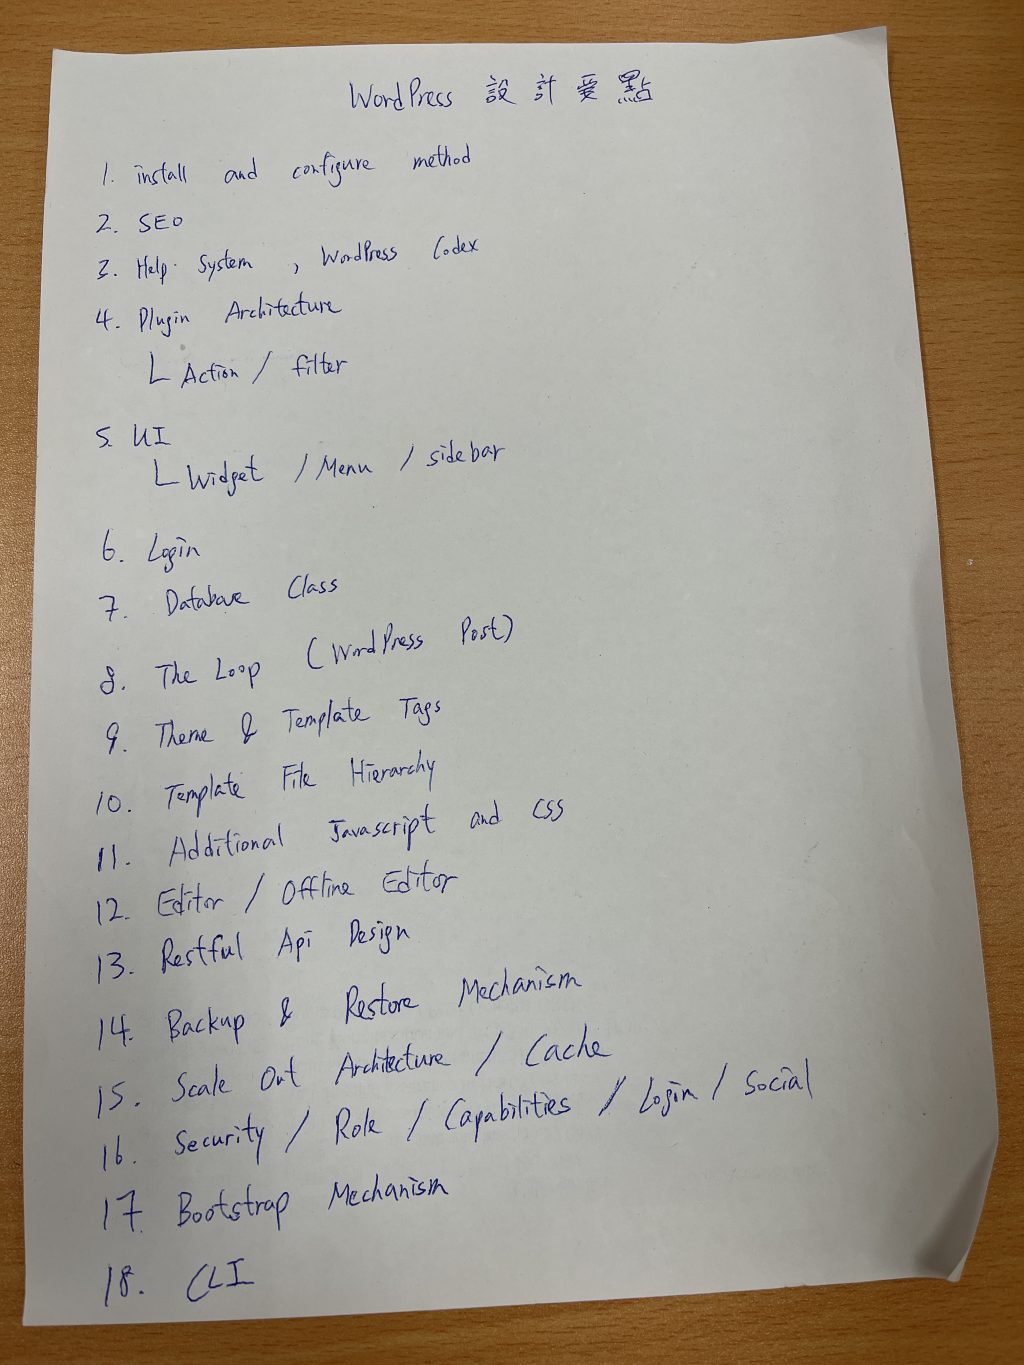 WordPress 設計要點
1. install and configure method
2. SEO
3. Help System , WordPress Codex
4. Plugin Architecture
└ Action / filter
5. UI
└ Widget / Menu / sidebar
6. Login
7. Database Class
8. The Loop (WordPress Post)
9. Theme & Template Tags
10. Template File Hierarchy
11. Additional Javascript and CSS
12. Editor / Offline Editor
13. Restful Api Design
14. Backup & Restore Mechanism
15. Scale Out Architecture / Cache
16. Security / Role / Capabilities / Login / Social
17 Bootstrap Mechanism
18. CLI